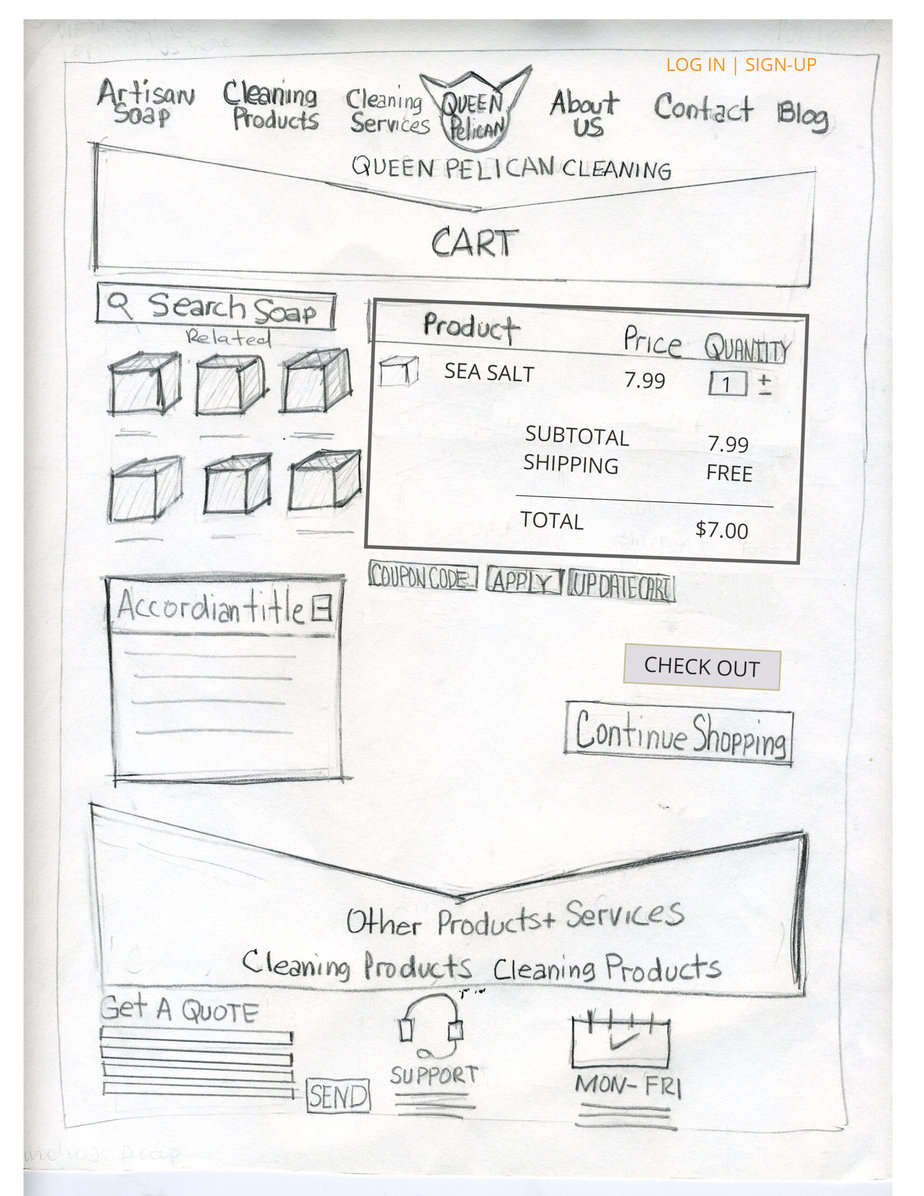 LOG IN | SIGN-UP
Artisan Soap
Cleaning Products
Cleaning Services
QUEEN Pelican
About US
Contact
Blog
QUEEN PELICAN CLEANING
CART
Search Soap
Related
Product Price QUANTITY
SEA SALT 7.99 1 + -
SUBTOTAL 7.99
SHIPPING FREE
TOTAL $7.00
COUPON CODE APPLY UPDATE CART
Accordian title
CHECK OUT
Continue Shopping
Other Products + Services
Cleaning Products Cleaning Products
Get A QUOTE
SEND
SUPPORT
MON-FRI